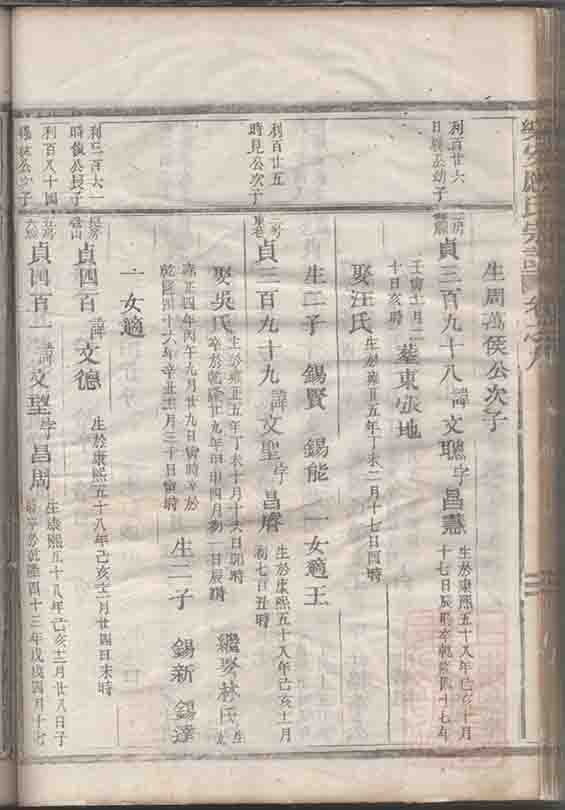 宗譜 卷之
生周萬侯公次子
利百廿六
公幼子
貞三百九十八 諱文聰 字昌慧
生於康熙五十八年己亥十月
十七日辰時卒乾隆四十七年
壬寅十一月二
十日亥時
葬東張地
娶汪氏
生於雍正五年丁未二月十七日酉時
生二子 錫賢 錫能 一女適王
利百廿五
時見公次子
二房
貞三百九十九 諱文聖 字昌
生於康熙五十八年己亥十二月
初七日丑時
娶吳氏
生於雍正五年丁未十月十六日
卒於乾隆廿九年甲申四月初一日辰時
繼娶林氏
生
雍正四年丙午九月廿九日寅時卒於
乾隆四十六年辛丑十二月三十日寅時
生二子 錫新 錫達
一女適
利三百六一
公長子
長房
貞四百 諱文德
生於康熙五十八年己亥十二月廿四日未時
利百八十四
公次子
五房
貞四百一 諱文 字昌周
生康熙五十八年己亥十二月廿八日子
時卒於乾隆四十三年戊戌四月十七